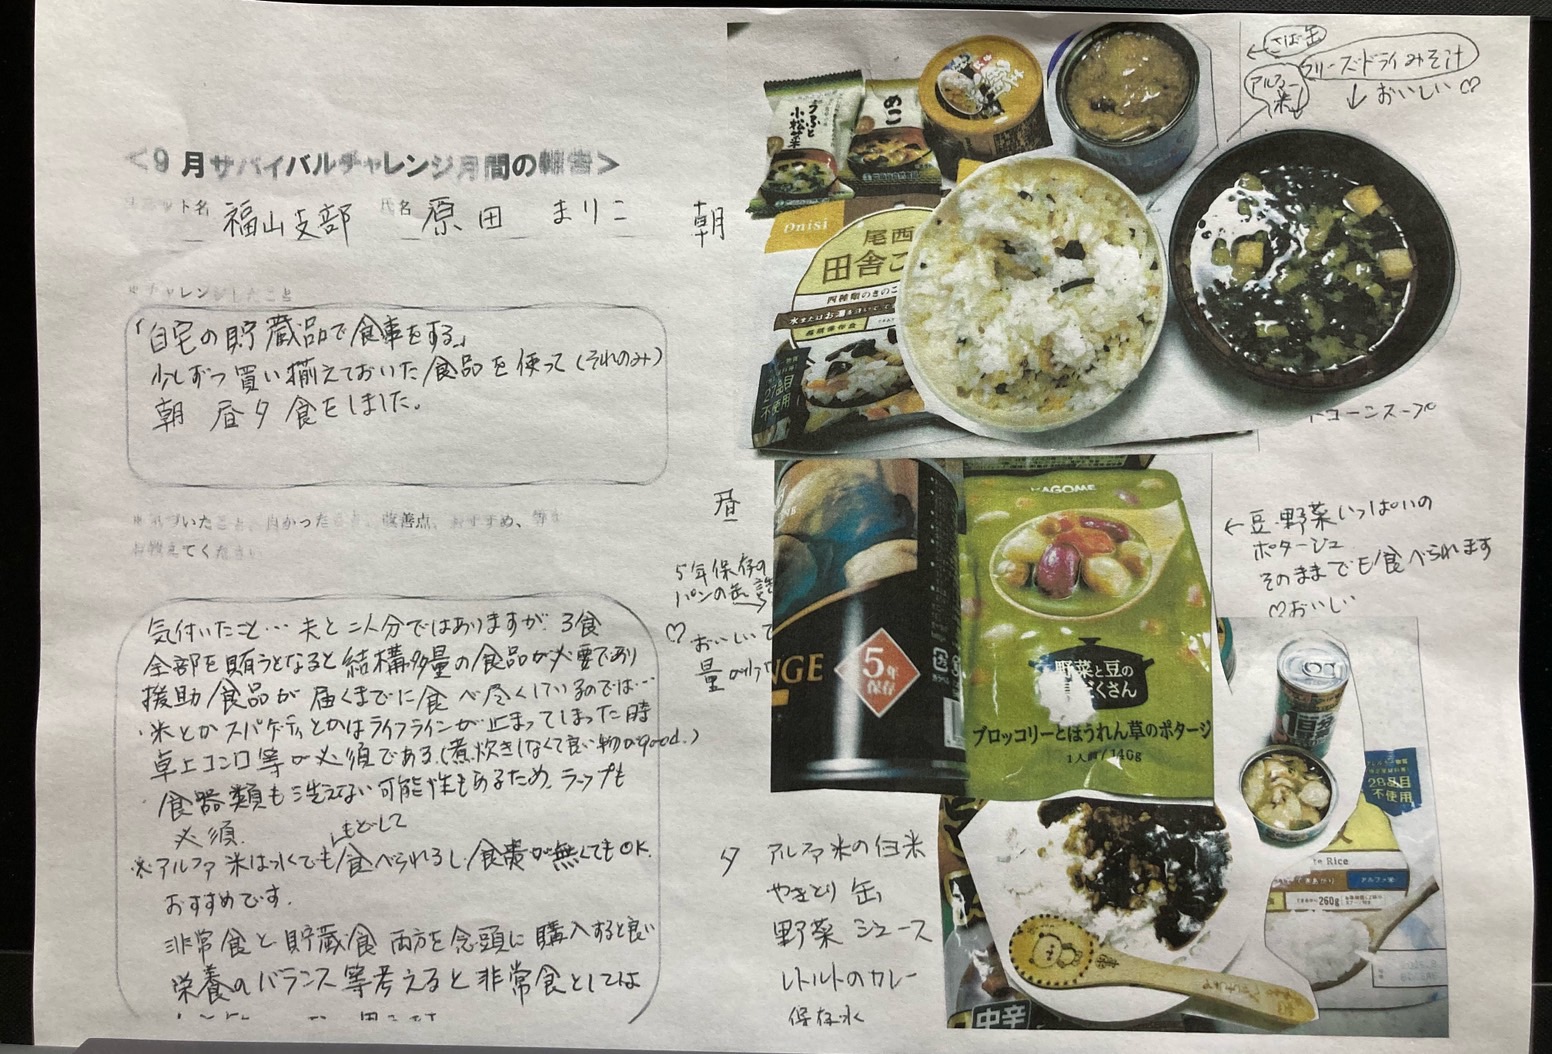 <9月サバイバルチャレンジ月間の報告>
ユニット名 福山支部 氏名 原田 まりこ
※チャレンジしたこと
「自宅の貯蔵品で食事をする」
少しずつ買い揃えておいた食品を使って(それのみ)
朝 昼夕 食をしました。
※気づいたこと、良かった点、改善点、おすすめ、等を
お教えてください
気付いたこと… 夫と二人分ではありますが 3食
全部を賄うとなると結構多量の食品が必要であり
援助食品が届くまでに食べ尽くしているのでは…
・米とかスパゲティとかはライフラインが止まってしまった時
卓上コンロ等が必須である。(煮炊きしなくて良い物がgood.)
・食器類も洗えない可能性もあるため、ラップも
必須.
もどして
※アルファ米は水でも食べられるし食器が無くてもOK.
おすすめです.
非常食と貯蔵食両方を念頭に購入すると良い
栄養のバランス等考えると非常食としては
朝
←さば缶
フリーズドライみそ汁
アルファー米
↓おいしい♡
うふと小松菜
めこ
Onisi
尾西
田舎ご
四種類のきのこ
27品目
不使用
コーンスープ
昼
5年保存の
パンの缶詰
♡おいしいて
NGE
5年
保存
KAGOME
野菜と豆の
くさん
ブロッコリーとほうれん草のポタージュ
1人前/140g
←豆・野菜いっぱいの
ポタージュ
そのままでも食べられます
♡おいしい
夕 アルファ米の白米
やきとり缶
野菜ジュース
レトルトのカレー
保存水
28品目
不使用
Rice
アルファ米
260g
中辛